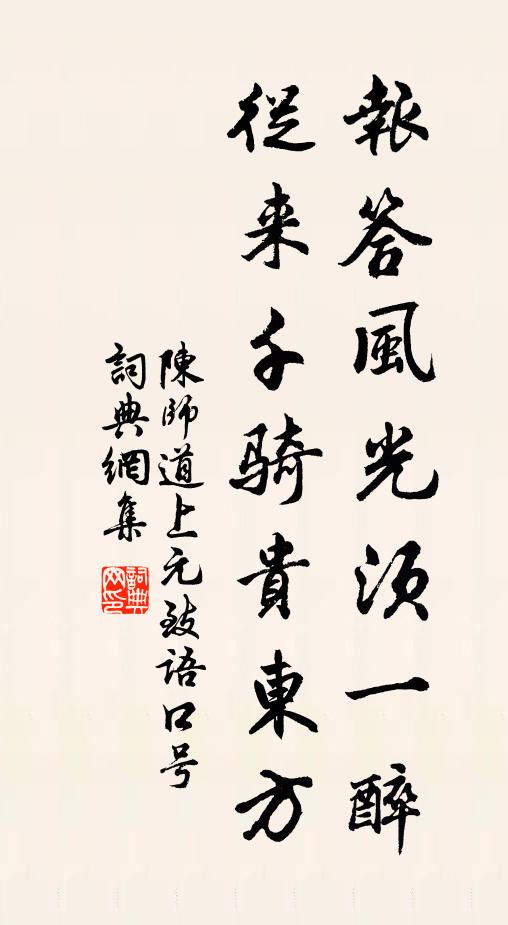 報答風光須一醉
從来千騎貴東方
陳師道上元致語口号
詞典網集
詞典網印